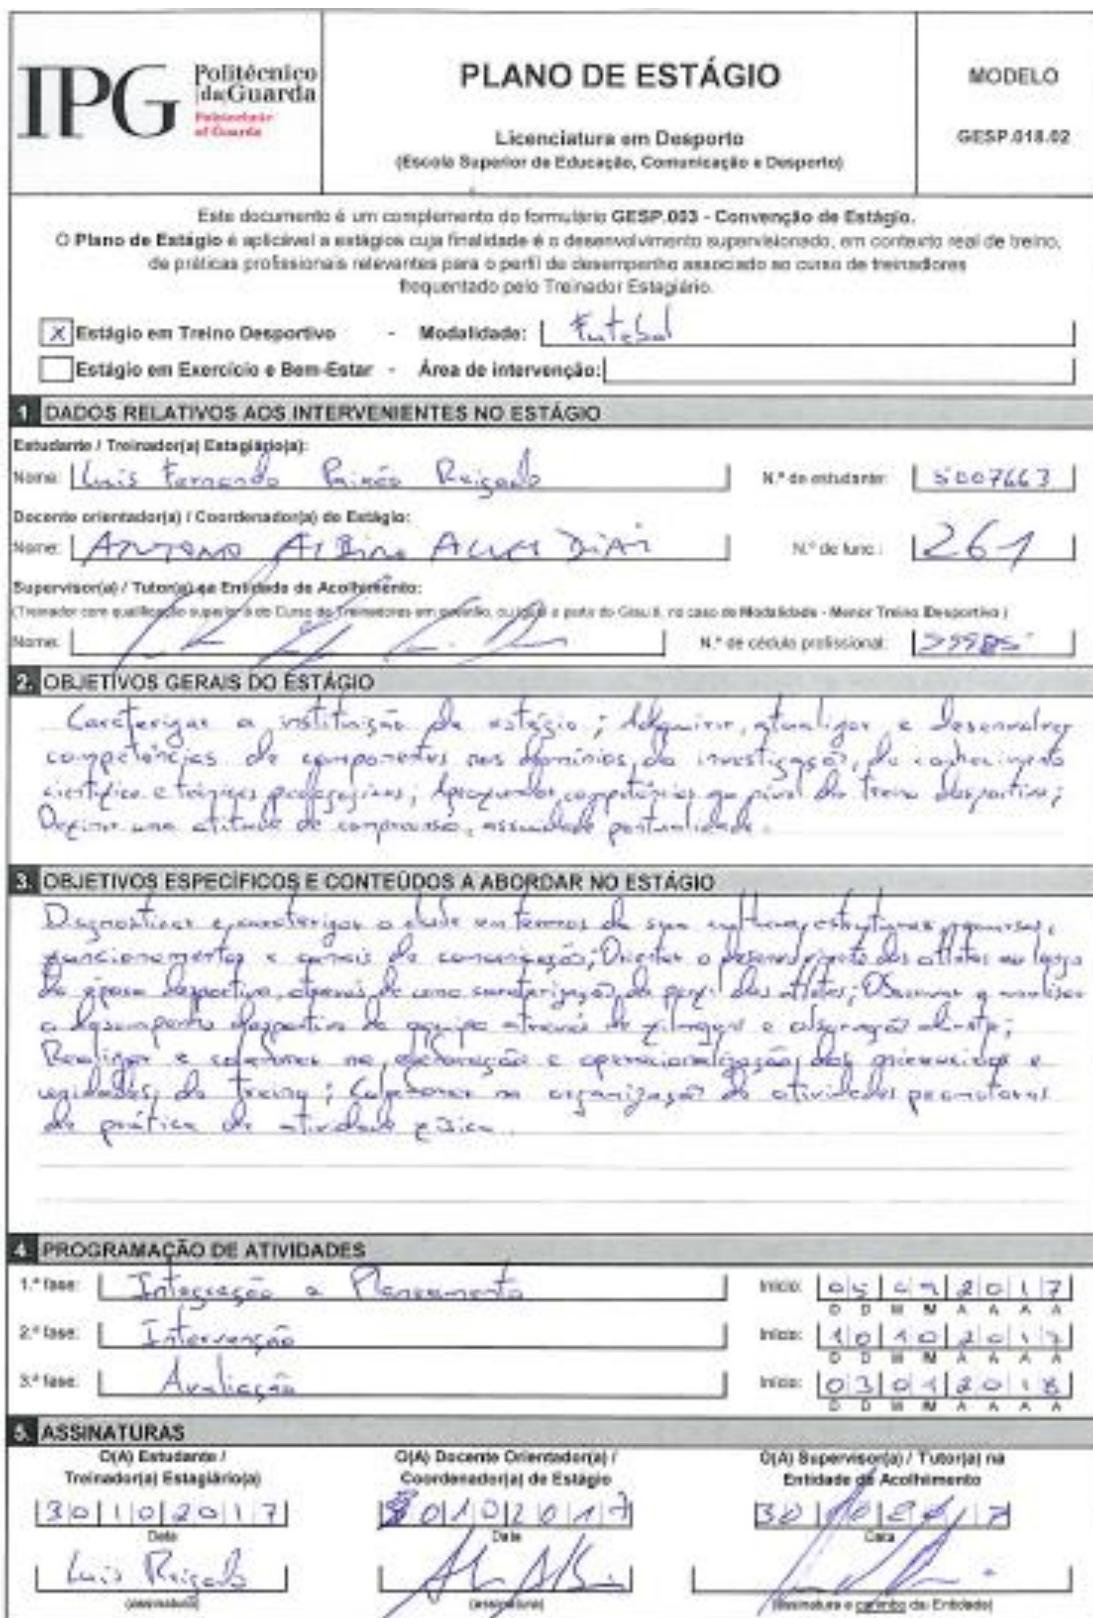 IPG Politécnico
da Guarda
Polytechnic
of Guarda
PLANO DE ESTÁGIO
Licenciatura em Desporto
(Escola Superior de Educação, Comunicação e Desporto)
MODELO
GESP.018.02
Este documento é um complemento do formulário GESP.003 - Convenção de Estágio.
O Plano de Estágio é aplicável a estágios cuja finalidade é o desenvolvimento supervisionado, em contexto real de treino,
de práticas profissionais relevantes para o perfil de desempenho associado ao curso de treinadores
frequentado pelo Treinador Estagiário.
X Estágio em Treino Desportivo - Modalidade: Futebol
Estágio em Exercício e Bem-Estar - Área de intervenção:
1 DADOS RELATIVOS AOS INTERVENIENTES NO ESTÁGIO
Estudante / Treinador(a) Estagiário(a):
Nome: Luís Fernando Paixão Reigado N.º de estudante: 5007663
Docente orientador(a) / Coordenador(a) de Estágio:
Nome: Albino Dias N.º de func.: 261
Supervisor(a) / Tutor(a) na Entidade de Acolhimento:
(Treinador com qualificação superior à do Curso de Treinadores em questão, ou igual a partir do Grau II, no caso de Modalidade - Menor Treino Desportivo)
Nome: N.º de cédula profissional:
2. OBJETIVOS GERAIS DO ESTÁGIO
Caracterizar a instituição de estágio; Adquirir, atualizar e desenvolver
competências de componentes nos domínios, da investigação, do conhecimento
científico e técnicas pedagógicas; Aprofundar competências ao nível do treino desportivo;
Definir uma atitude de compromisso, assiduidade pontualidade.
3. OBJETIVOS ESPECÍFICOS E CONTEÚDOS A ABORDAR NO ESTÁGIO
Diagnosticar e caracterizar o clube em termos da sua cultura, estruturas, recursos,
funcionamentos e canais de comunicação; Orientar o desenvolvimento dos atletas ao longo
da época desportiva, através de uma caracterização do perfil dos atletas; Observar e analisar
o desempenho desportivo da equipa através de filmagens e observação direta;
Realizar e colaborar na elaboração e operacionalização dos e
unidades de treino; Colaborar na organização de atividades promotoras
da prática de atividade física.
4. PROGRAMAÇÃO DE ATIVIDADES
1.ª fase: Integração e Planeamento Início: 05092017
D D M M A A A A
2.ª fase: Intervenção Início: 10102017
D D M M A A A A
3.ª fase: Avaliação Início: 03012018
D D M M A A A A
5. ASSINATURAS
O(A) Estudante /
Treinador(a) Estagiário(a)
30102017
Data
Luís Reigado
(assinatura)
O(A) Docente Orientador(a) /
Coordenador(a) de Estágio
30102017
Data
(assinatura)
O(A) Supervisor(a) / Tutor(a) na
Entidade de Acolhimento
30102017
Data
(assinatura e carimbo da Entidade)